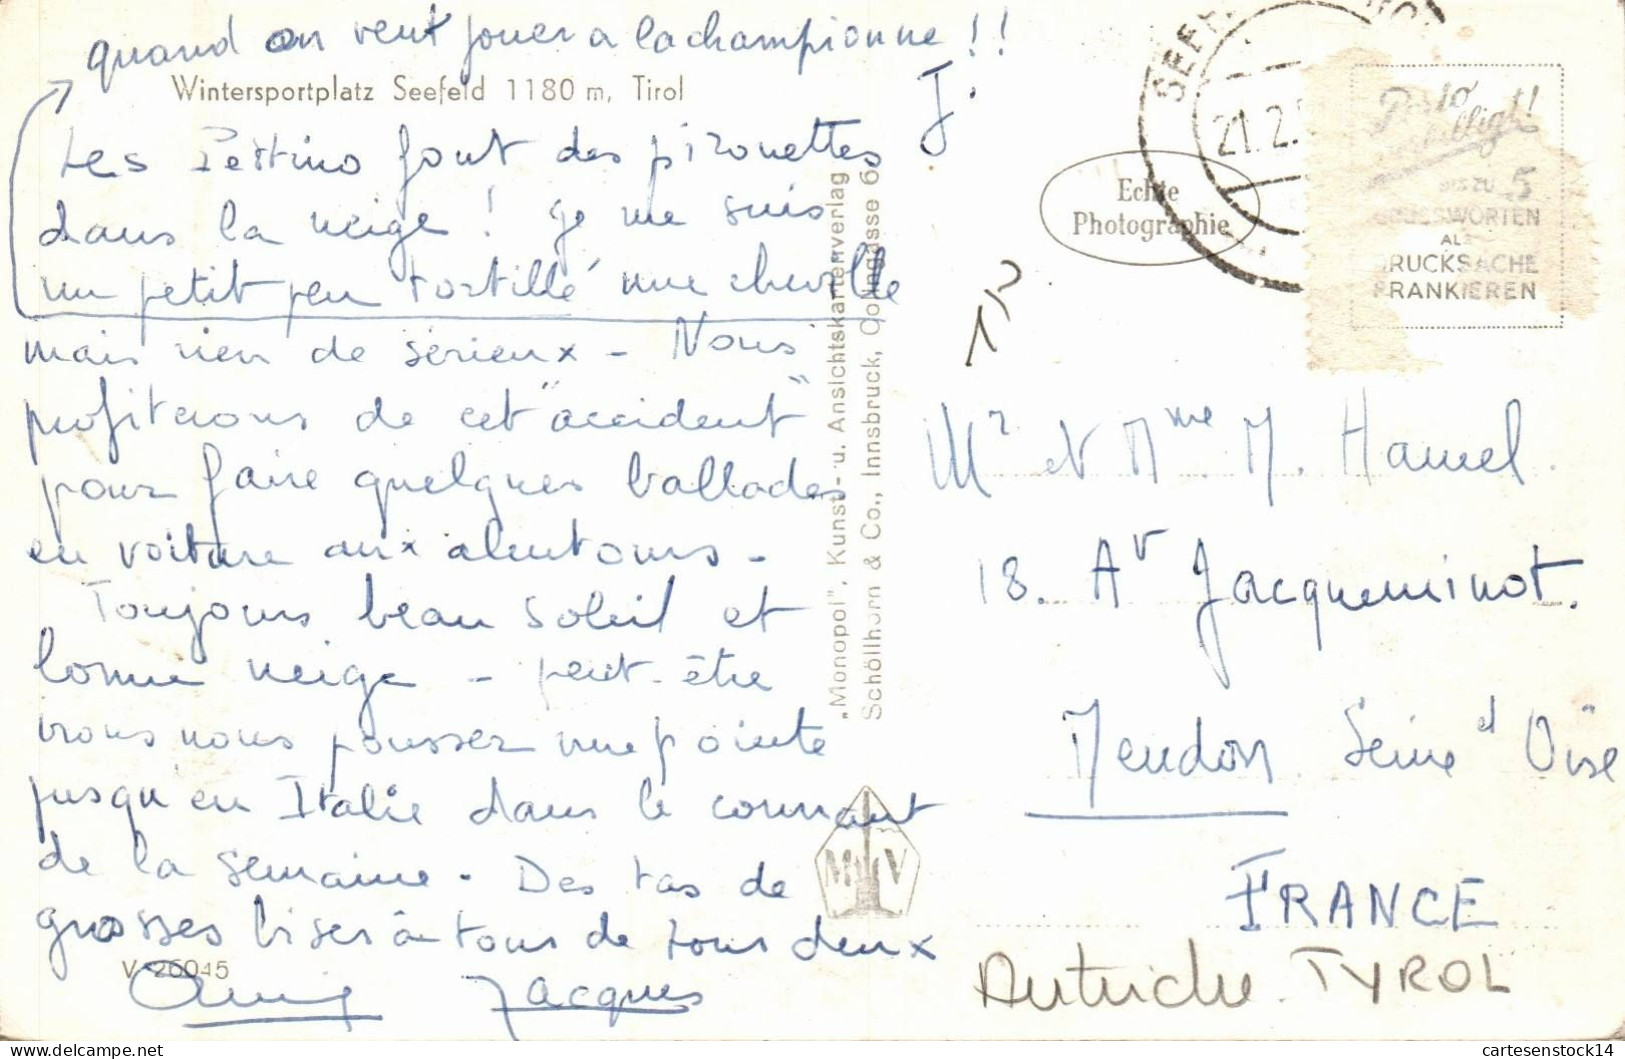 quand on veut jouer a la championne !!
J.
Wintersportplatz Seefeld 1180 m, Tirol
Les font des pirouettes
dans la neige ! Je me suis
un petit peu tortillé une cheville
mais rien de sérieux - Nous
profiterons de cet "accident"
pour faire quelques ballades
en voiture aux alentours -
Toujours beau soleil et
bonne neige - peut-être
irons nous pousser une pointe
jusqu'en Italie dans le courant
de la semaine - Des tas de
grosses bises à tous de tous deux
V 26045
Jacques
"Monopol", Kunst- u. Ansichtskartenverlag
Schöllhorn & Co., Innsbruck, Colingasse 6
M V
Echte
Photographie
SEEF
21.2.
Porto
billigt!
BIS ZU 5
GRUSSWORTEN
ALS
DRUCKSACHE
FRANKIEREN
Mr et Mme M. Hamel
18. Av Jacqueminot.
Meudon Seine et Oise
FRANCE
Autriche. TYROL
cartesenstock14